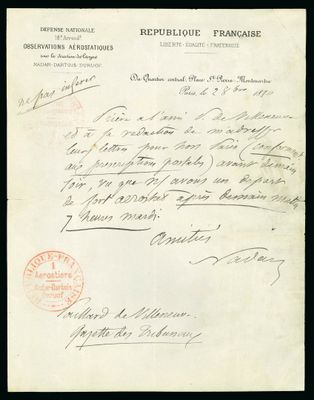 DEFENSE NATIONALE
18e Arrondt
OBSERVATIONS AÉROSTATIQUES
NADAR-DARTOIS-DURUOF
RÉPUBLIQUE FRANÇAISE
LIBERTÉ - ÉGALITÉ - FRATERNITÉ
Du Quartier central, Place St Pierre-Montmartre
Paris, le 2 8bre 1870
ne pas insérer
Prière à l'ami P. de Villeneuve
et à sa rédaction de m'adresser
leurs lettres pour hors Paris (conformément
aux prescriptions postales) avant demain
soir, vu que n/ avons un départ
de fort aérostat après demain matin
7 heures mardi.
Amitiés
Nadar
RÉPUBLIQUE FRANÇAISE
Aérostiers
Nadar-Dartois
Duruof
Paillard de Villeneuve
Gazette des Tribunaux